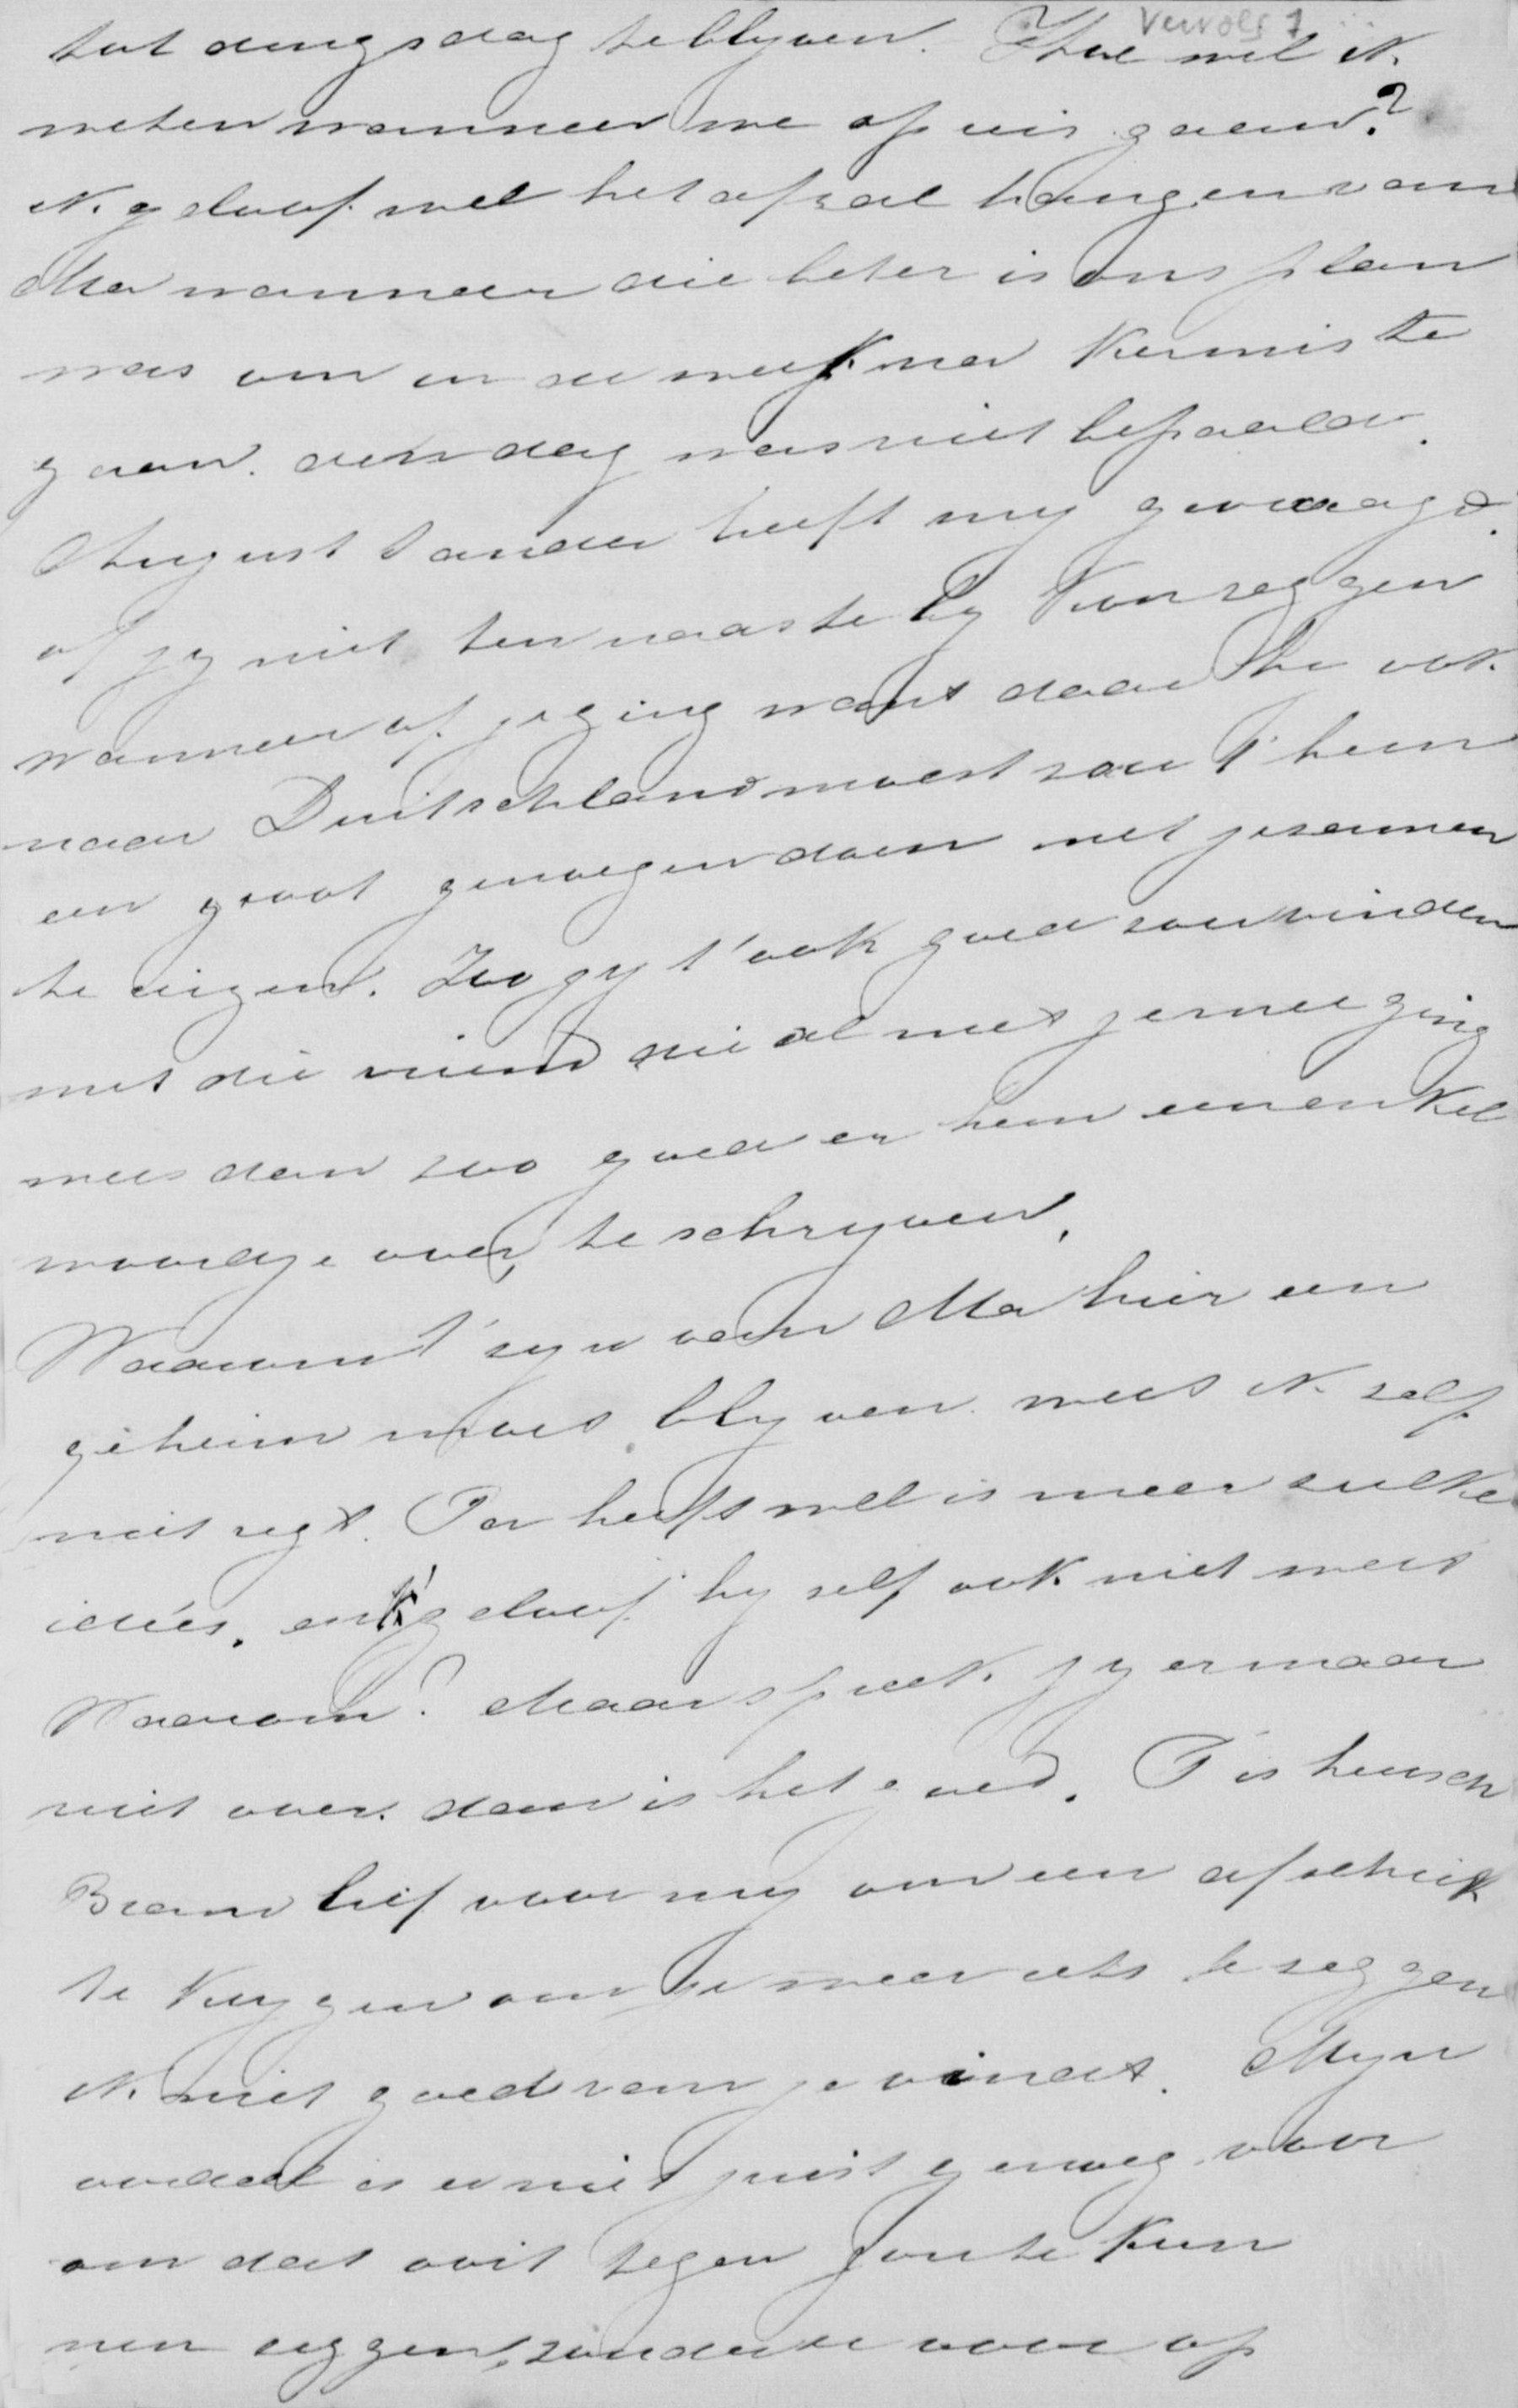 Vervolg 1
tot dingsdag te blyven. Hoe wil ik
weten wanneer we op reis gaan?
Ik geloof wel het af zal hangen van
Ma wanneer die beter is ons plan
was om in de week na Kermis te
gaan. den dag was niet bepaald.
August Sander heeft my gevraagd.
of jy niet ten naaste by kon zeggen
wanneer of je ging want daar he ook
naar Duitschland moest zou 't hem
een groot genoegen doen met je samen
te reizen. Zoo gy 't ook goed zou vinden
met die vriend die al met je mee ging
wees dan zoo goed er hem een enkel
woordje over te schryven.
Waarom 't zyn van Ma hier een
geheim moet blyven weet ik zelf
niet regt. Pa heeft wel is meer zulke
ideées. en 'k geloof hy zelf ook niet weet
Waarom? Maar spreek jy er maar
niet over dan is het goed. T is heusch
Bram lief voor my om een afschrik
te krygen om je weer iets te zeggen
ik niet goed van je vindt. Myn
oordeel is er niet juist genoeg voor
om dat ooit tegen jou te kun
nen zeggen, zonder er voor op